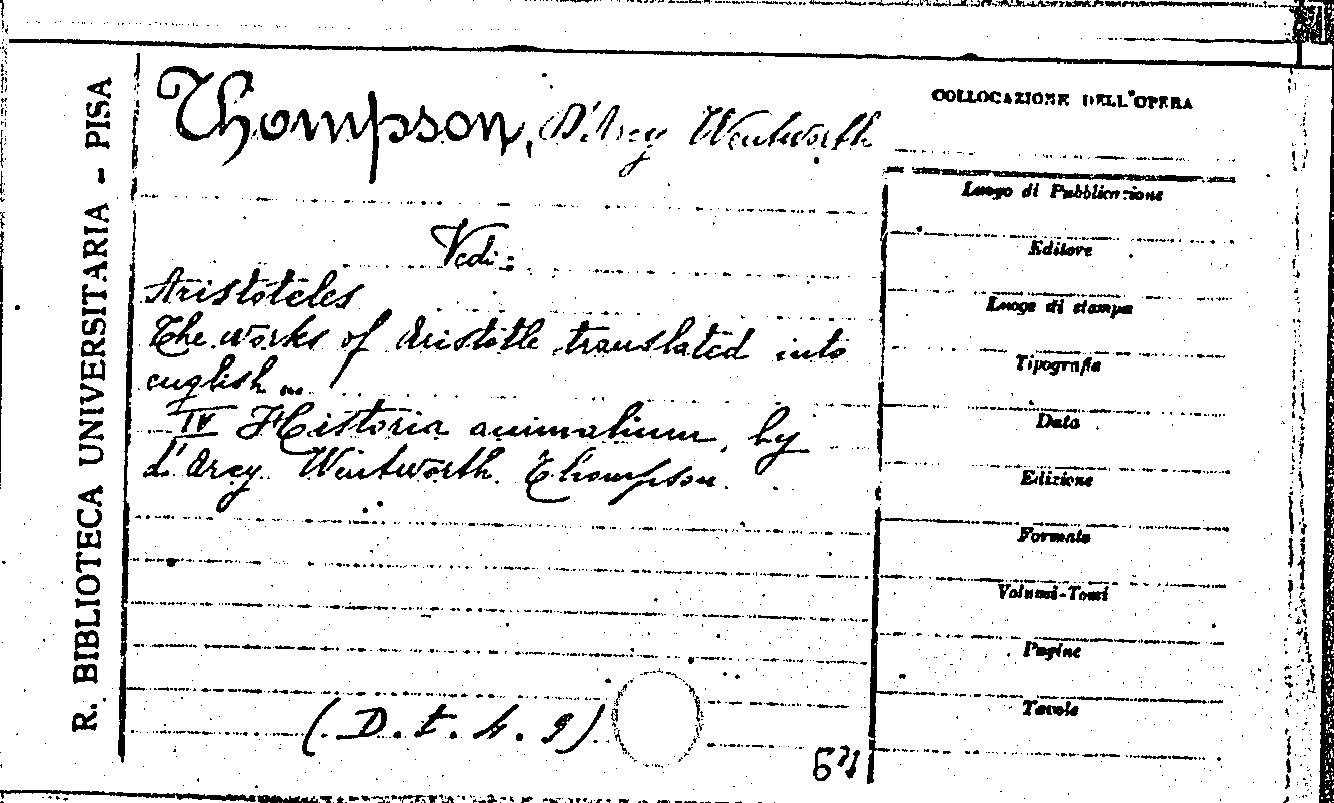 R. BIBLIOTECA UNIVERSITARIA - PISA
Thompson, D'Arcy Wentworth
Vedi:
Aristoteles
The works of Aristotle translated into
english ...
IV Historia animalium, by
d'Arcy Wentworth Thompson.
(D.t.4.9)
COLLOCAZIONE DELL'OPERA
Luogo di Pubblicazione
Editore
Luogo di stampa
Tipografia
Data
Edizione
Formato
Volumi-Tomi
Pagine
Tavole